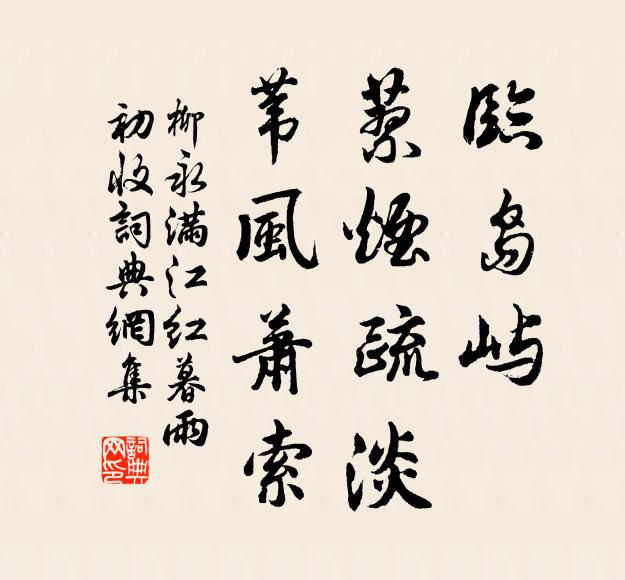 臨島嶼
蓼煙疏淡
葦風蕭索
柳永滿江紅暮雨
初收詞典網集
詞典網印